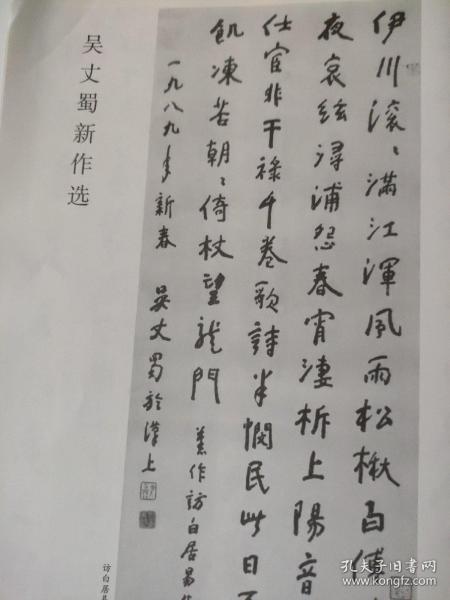 吴丈蜀新作选
伊川滚〻满江浑风雨松楸白傅
夜哀絃浔浦怨春宵凄柝上阳音
仕宦非干禄千卷歌诗半悯民此日
飢冻苦朝〻倚杖望龙门 旧作访白居易
一九八九年新春 吴丈蜀於汉上
访白居易
孔夫子旧书网
book.kongfz.com